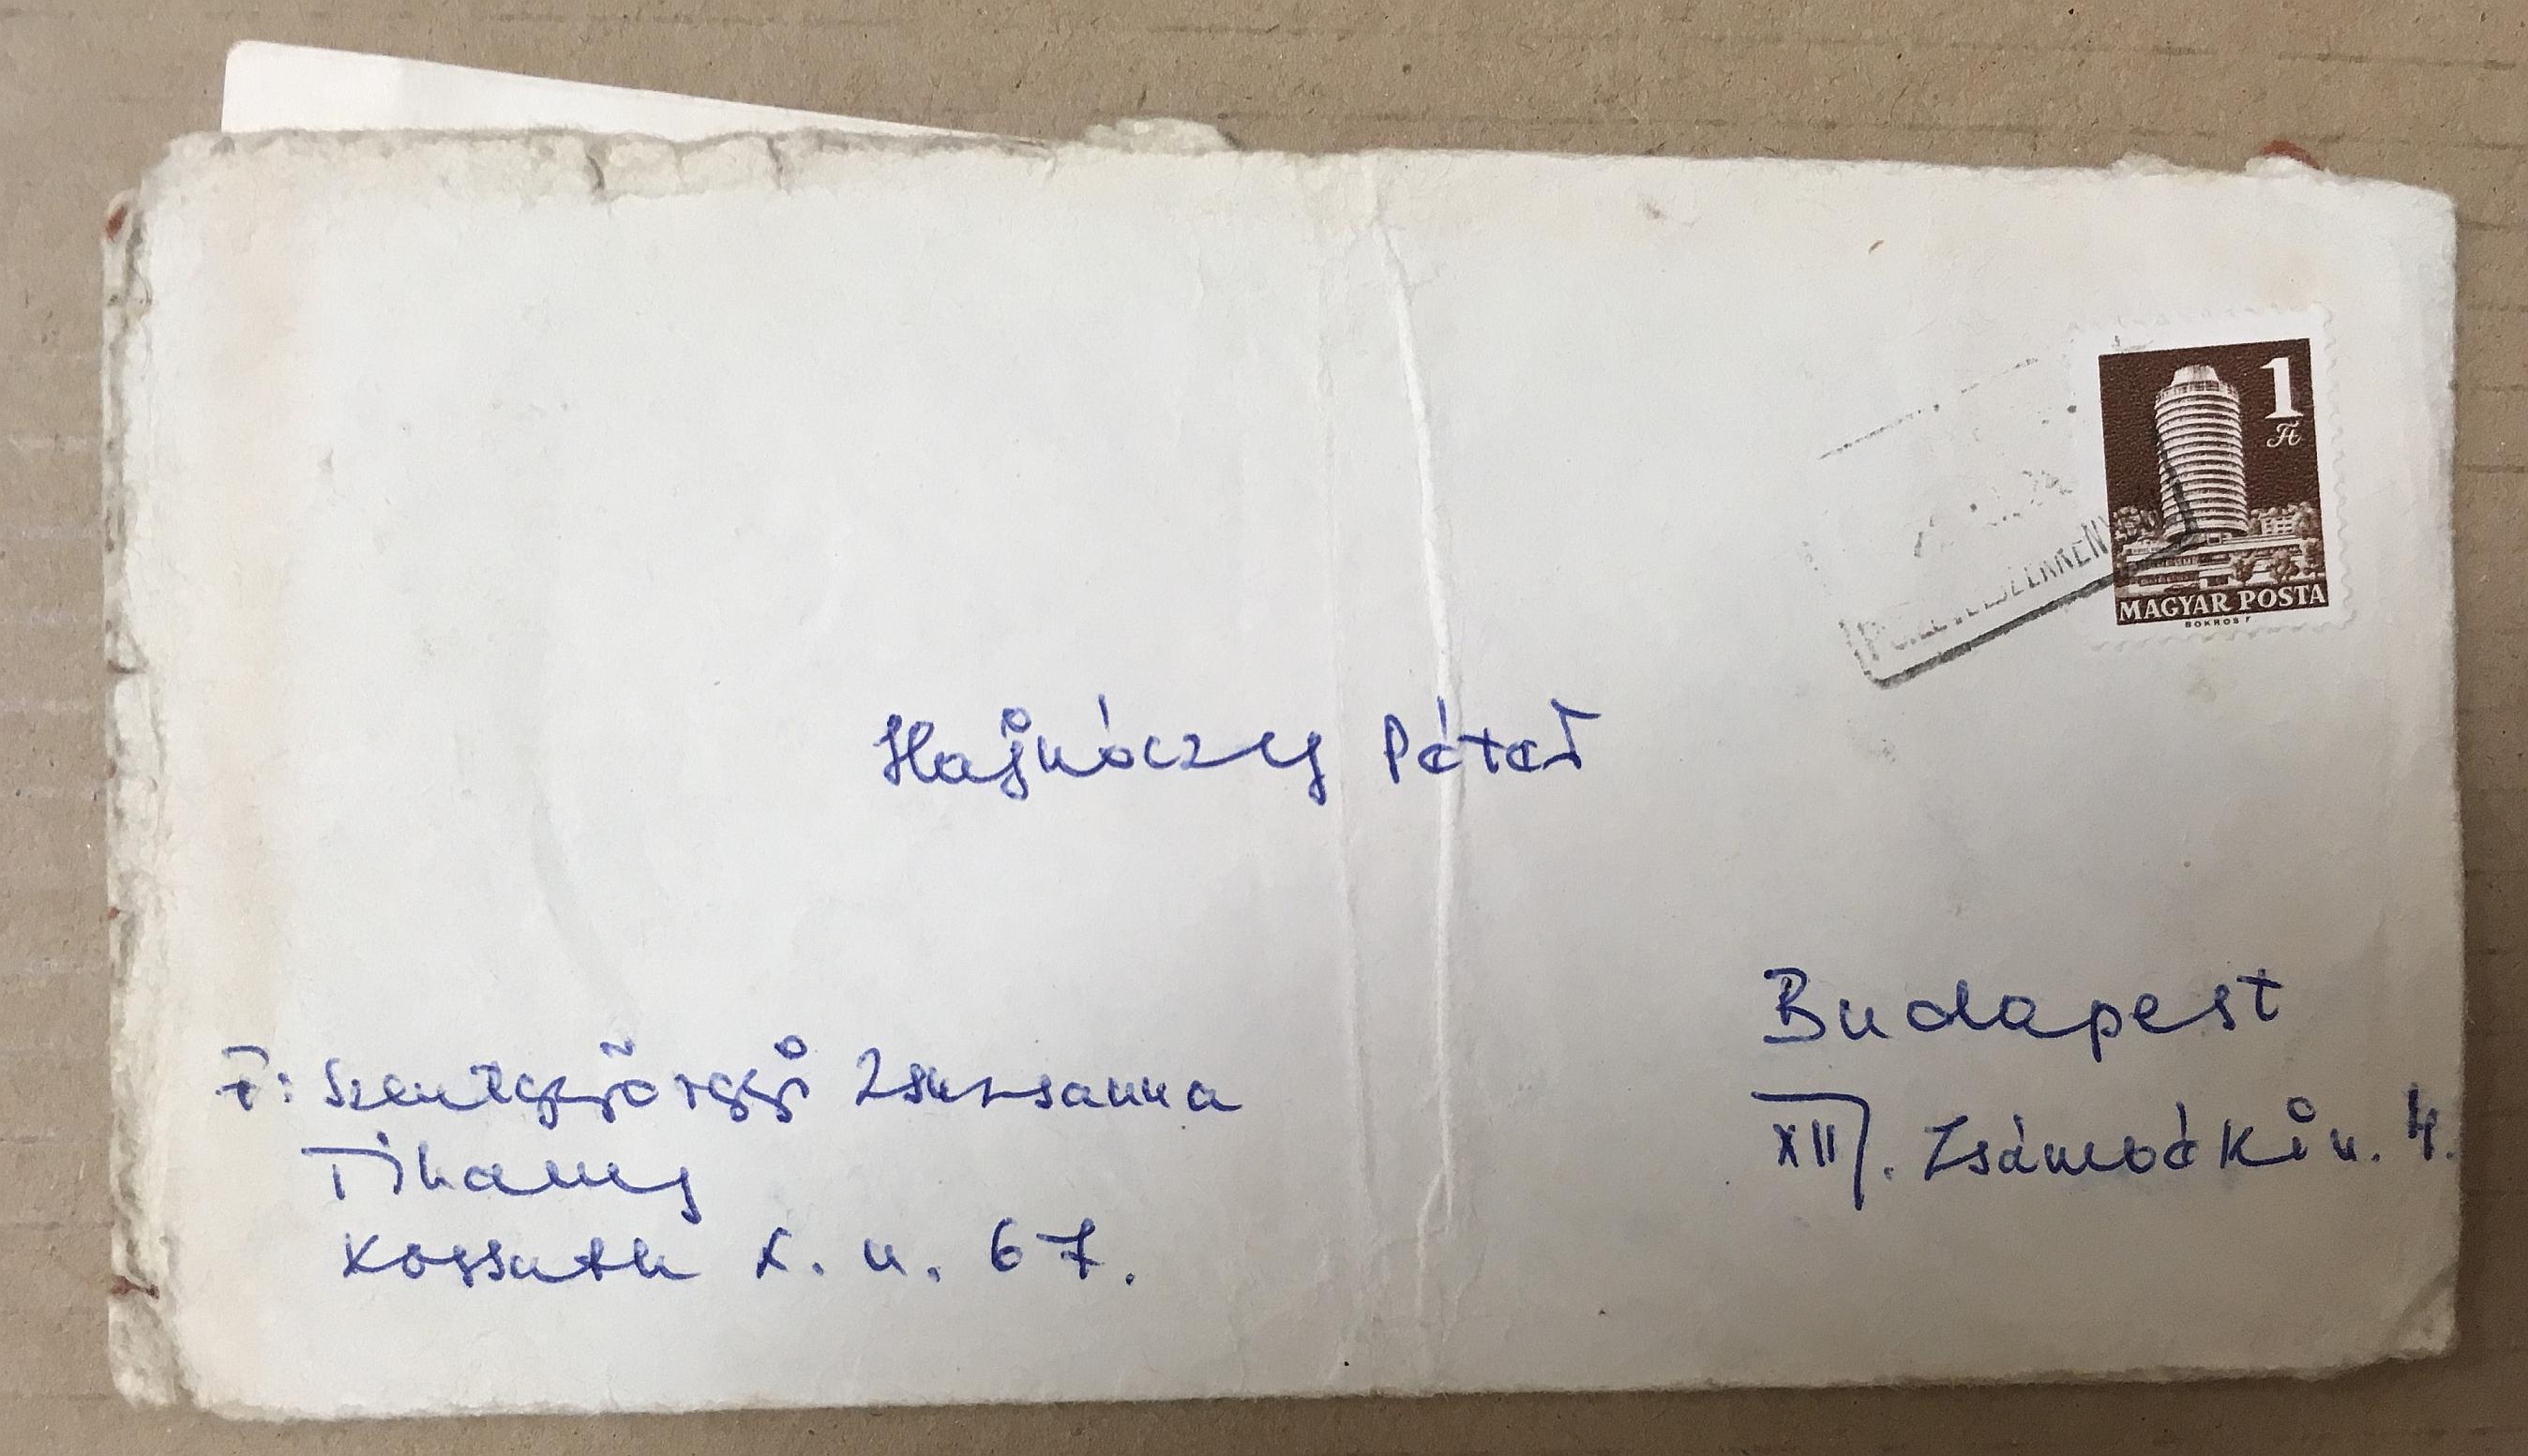 1
Ft
MAGYAR POSTA
BOKROS F
Hajnóczy Péter
Budapest
XII. Zsámbéki u. 4.
F: Szentgyörgyi Zsuzsanna
Tihany
Kossuth L. u. 67.